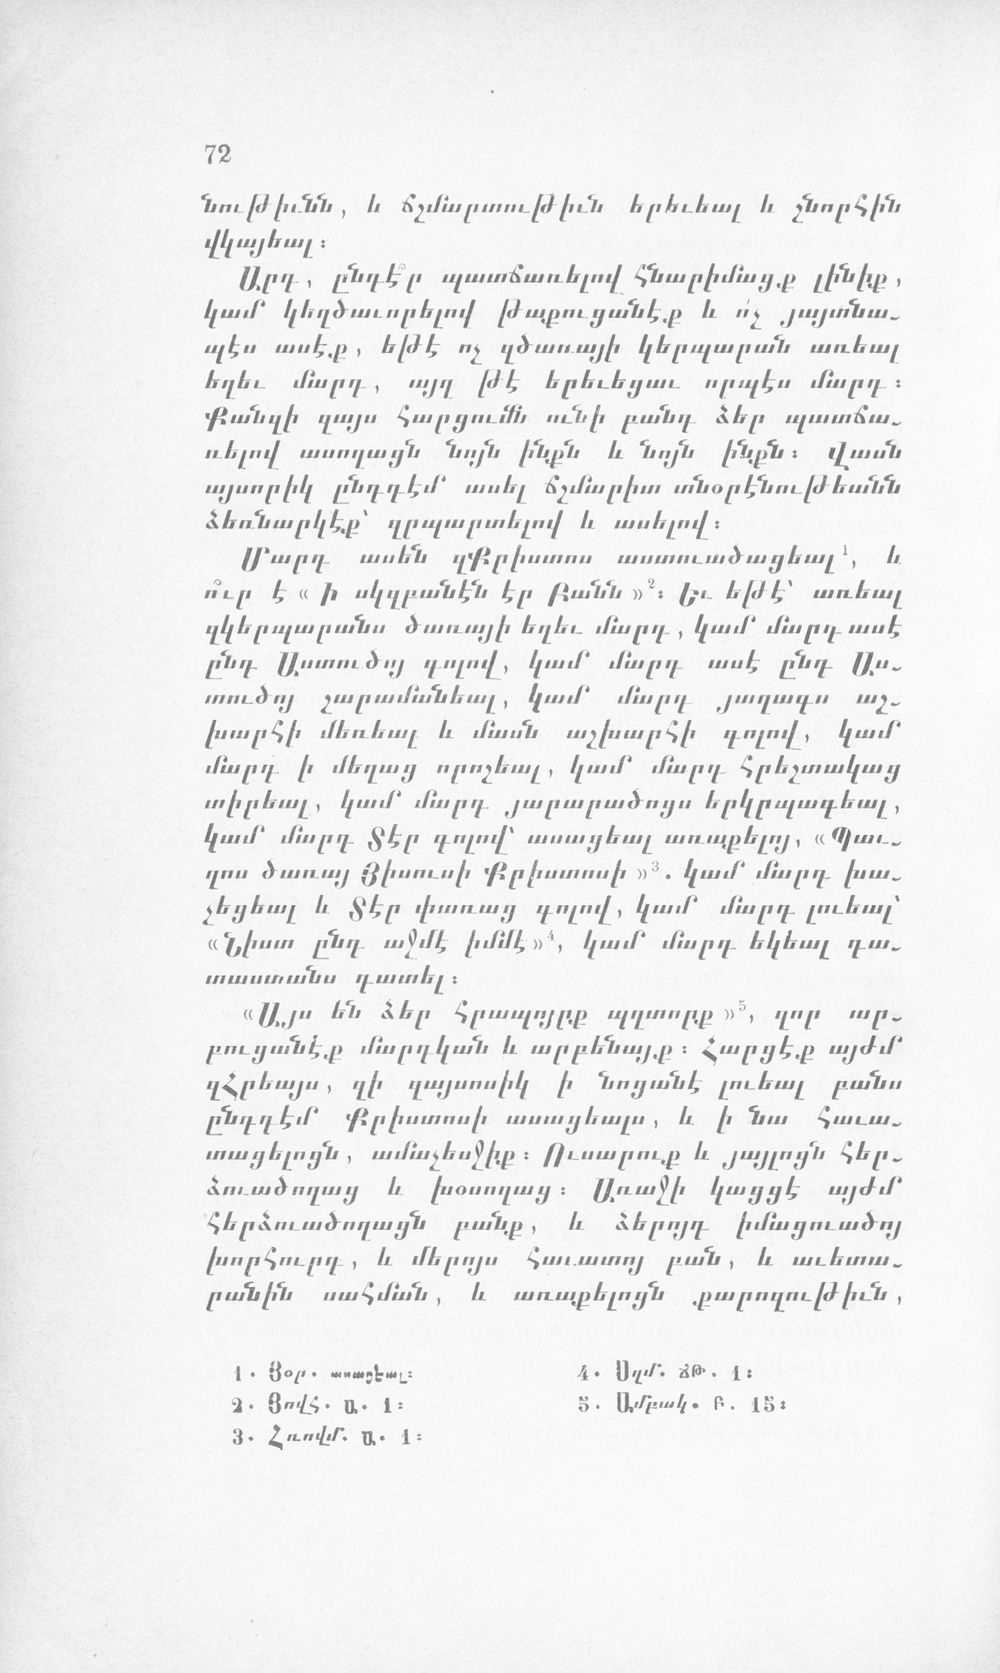 72
նութիւնն, և ճշմարտութիւն երեւեալ և շնորհին
վկայեալ։
Արդ, ընդէ՞ր պատճառելով հնարիմացք լինիք,
կամ կեղծաւորելով թաքուցանէք և ո՛չ յայտնա֊
պէս ասէք, եթէ ոչ զծառայի կերպարան առեալ
եղեւ մարդ, այլ թէ երեւեցաւ որպէս մարդ։
Քանզի զայս հարցումն ունի բանդ ձեր պատճա֊
ռելով ասողացն նոյն ինքն և նոյն ինքն։ Վասն
այսորիկ ընդդէմ ասել ճշմարիտ տնօրէնութեանն
ձեռնարկէք՝ զրպարտելով և ասելով։
Մարդ ասեն զՔրիստոս աստուածացեալ¹, և
ո՞ւր է « Ի սկզբանէն էր Բանն »²։ Եւ եթէ՝ առեալ
զկերպարանս ծառայի եղեւ մարդ, կամ մարդ ասէ
ընդ Աստուծոյ գոլով, կամ մարդ ասէ ընդ Աս֊
տուծոյ չարամանեալ, կամ մարդ յաղագս աշ֊
խարհի մեռեալ և մասն աշխարհի գոլով, կամ
մարդ ի մեղաց որոշեալ, կամ մարդ հրեշտակաց
տիրեալ, կամ մարդ յարարածոցս երկրպագեալ,
կամ մարդ Տէր գոլով՝ ասացեալ առաքելոյ, «Պաւ֊
ղոս ծառայ Յիսուսի Քրիստոսի »³. կամ մարդ խա֊
չեցեալ և Տէր փառաց գոլով, կամ մարդ լուեալ՝
«Նիստ ընդ աջմէ իմմէ»⁴, կամ մարդ եկեալ դա֊
տաստանս դատել։
«Այս են ձեր հրապոյրք պղտորք »⁵, զոր ար֊
բուցանէք մարդկան և արբենայք։ Հարցէք այժմ
զՀրեայս, զի զայսոսիկ ի նոցանէ լուեալ բանս
ընդդէմ Քրիստոսի ասացեալս, և ի նա հաւա֊
տացելոցն, ամաչեսջիք։ Ուսարուք և յայլոցն հեր֊
ձուածողաց և խօսողաց։ Առաջի կացցէ այժմ
հերձուածողացն բանք, և ձերոյդ իմացուածոյ
խորհուրդ, և մերոյս հաւատոյ բան, և աւետա֊
րանին սահման, և առաքելոցն քարոզութիւն,
1. Յօր. ասացեալ։
2. Յովհ. Ա. 1։
3. Հռովմ. Ա. 1։
4. Սղմ. ՃԹ. 1։
5. Ամբակ. Բ. 15։